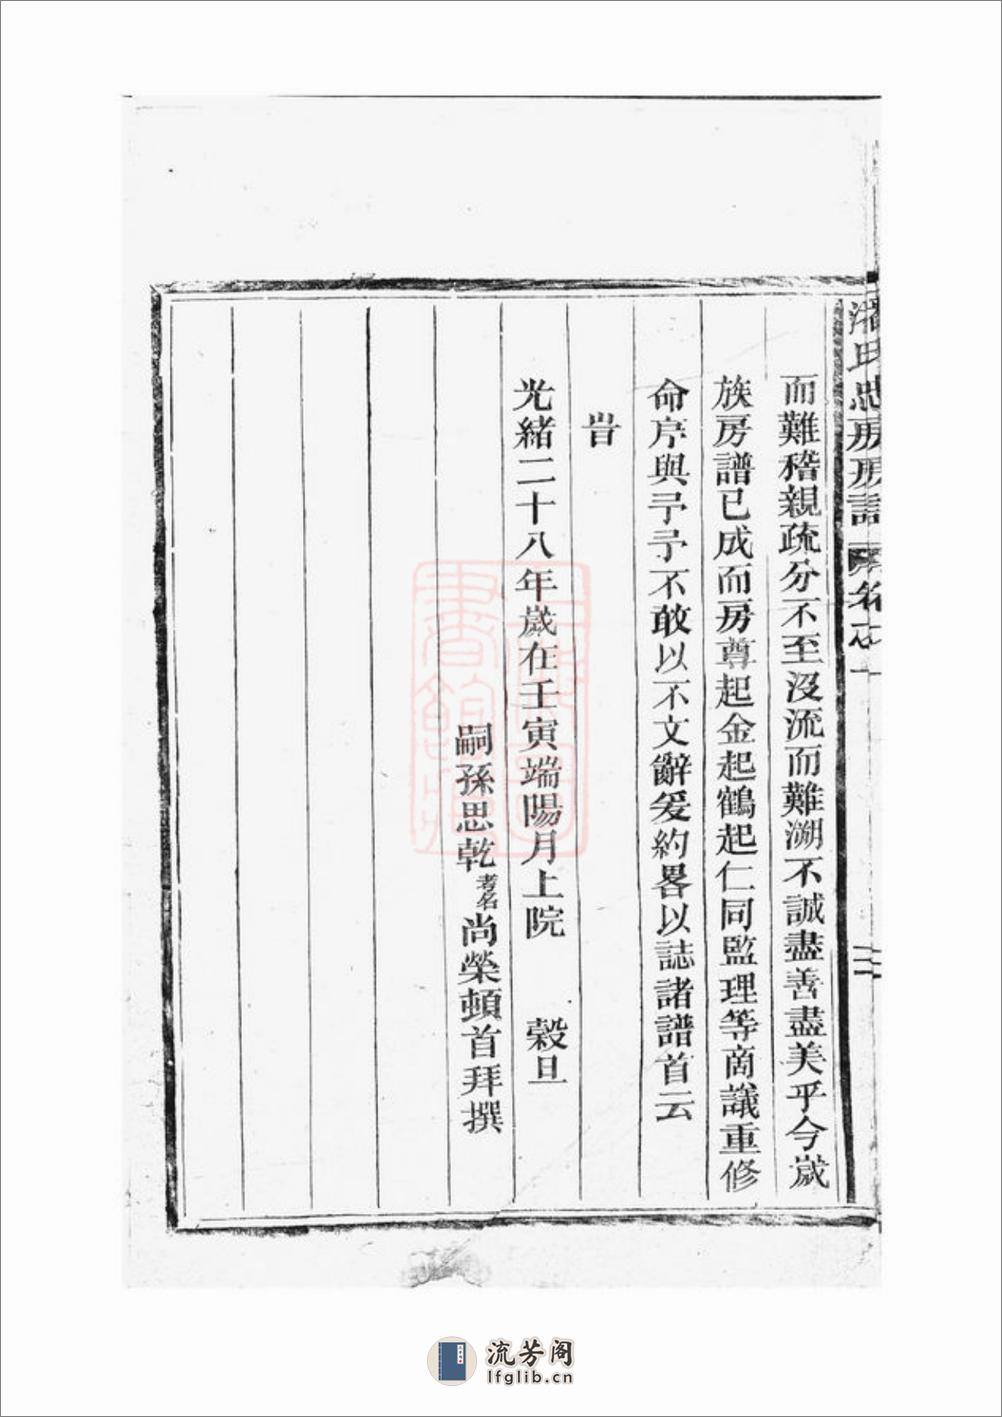 而難稽親疏分不至沒流而難溯不誠盡善盡美乎今嵗
族房譜已成而房尊起金起鶴起仁同監理等啇議重修
命序與予予不敢以不文辭爰約畧以誌諸譜首云
旹
光緒二十八年嵗在壬寅端陽月上院 穀旦
嗣孫思乾考名尚榮頓首拜撰
流芳阁
lfglib.cn